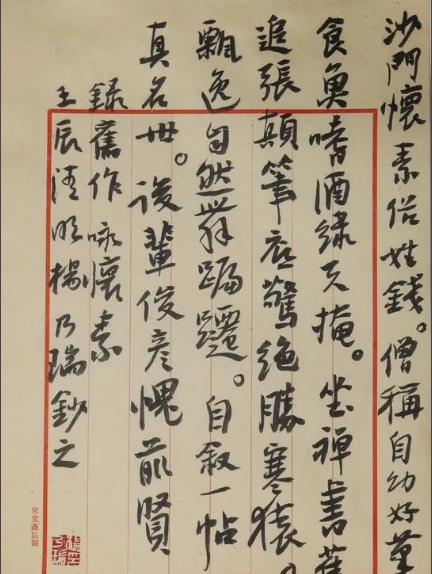 沙門懷素俗姓錢。僧稱自幼好
食魚嗜酒綠天掩。坐禪書蕉
追張顛筆底驚絕勝寒猿。
飄逸自然舞蹁躚。自敘一帖
真名世。後輩俊彥愧前賢
錄舊作詠懷素
壬辰清明楊乃瑞鈔之